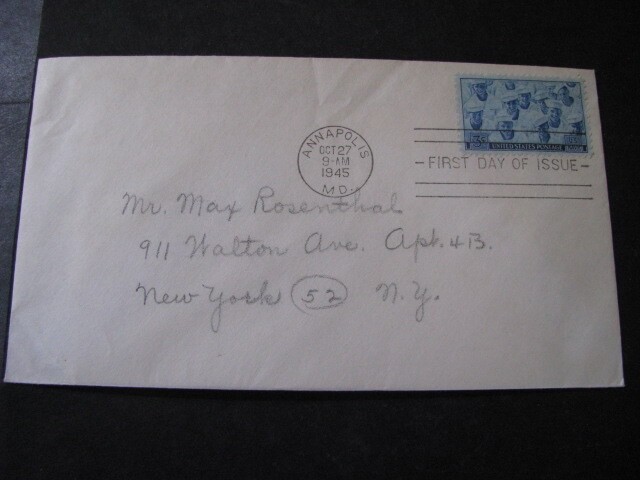 ANNAPOLIS
OCT 27
9-AM
1945
MD.
UNITED STATES POSTAGE
-FIRST DAY OF ISSUE-
Mr. Max Rosenthal
911 Walton Ave. Apt. 4B.
New York 52 N.Y.